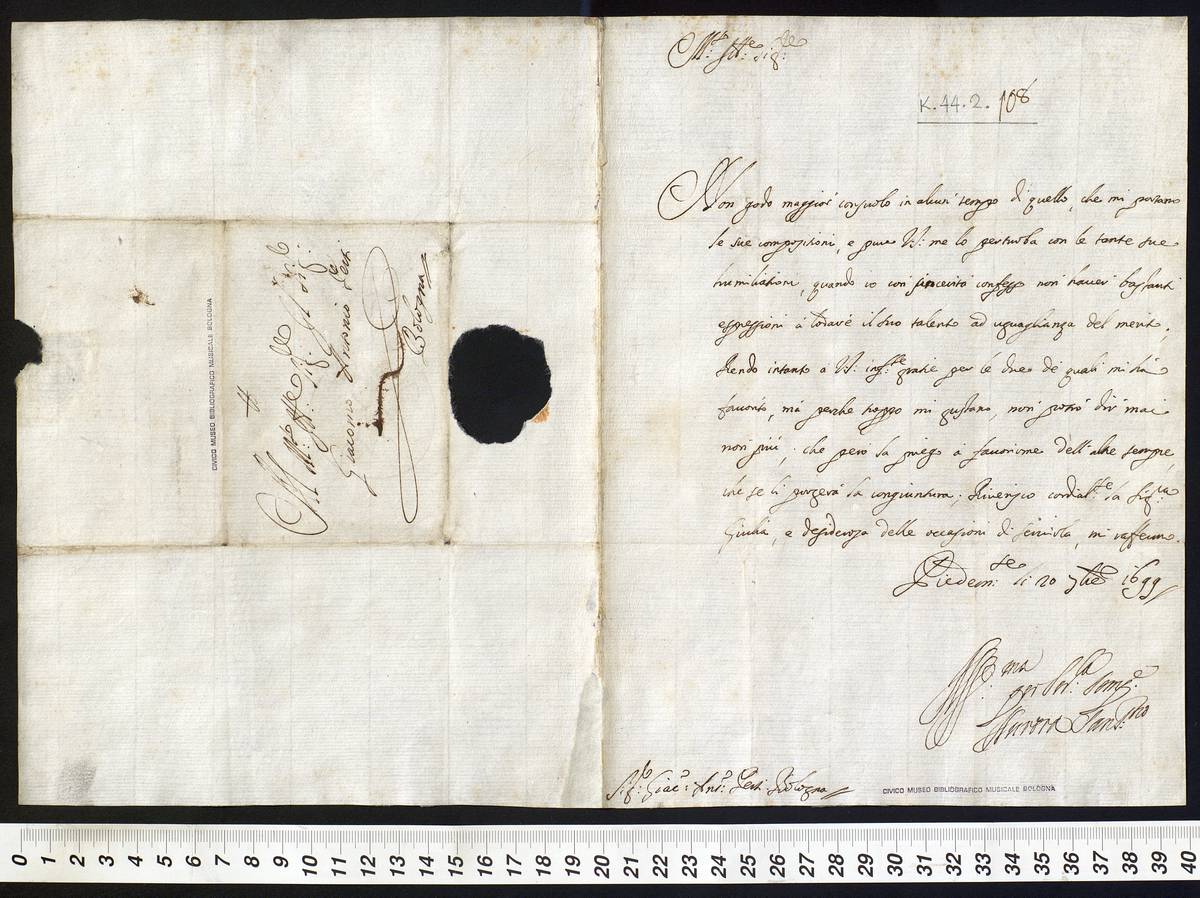 Al M.to Ill.re Sig.r Sig.r
Giacomo Antonio Perti
Bologna
CIVICO MUSEO BIBLIOGRAFICO MUSICALE BOLOGNA
M.to Ill.re Sig.re
K.44.2.108
Non godo maggior consuolo in alcun tempo di quello, che mi portano
le sue compositioni, e pure V.S. me lo perturba con le tante sue
humiliationi, quando io con sincerità confesso non haver bastanti
espressioni à lodare il suo talento ad uguaglianza del merito.
Rendo intanto à V.S. inf.te gratie per le due de quali mi hà
favorito, mà perche troppo mi gustano, non potrò dir mai
non più, che però la priego à favorirme dell'altre sempre,
che se li porgerà la congiuntura; Riverisco cordial.te la Sig.ra
Giulia, e desiderosa delle occasioni di servirla, mi raffermo.
Piedem.te li 20 7bre 1699
Aff.ma
per Ser.la sempre
Aurora Sans.no
S.r Giac.o Ant.o Perti Bologna
CIVICO MUSEO BIBLIOGRAFICO MUSICALE BOLOGNA
0 1 2 3 4 5 6 7 8 9 10 11 12 13 14 15 16 17 18 19 20 21 22 23 24 25 26 27 28 29 30 31 32 33 34 35 36 37 38 39 40